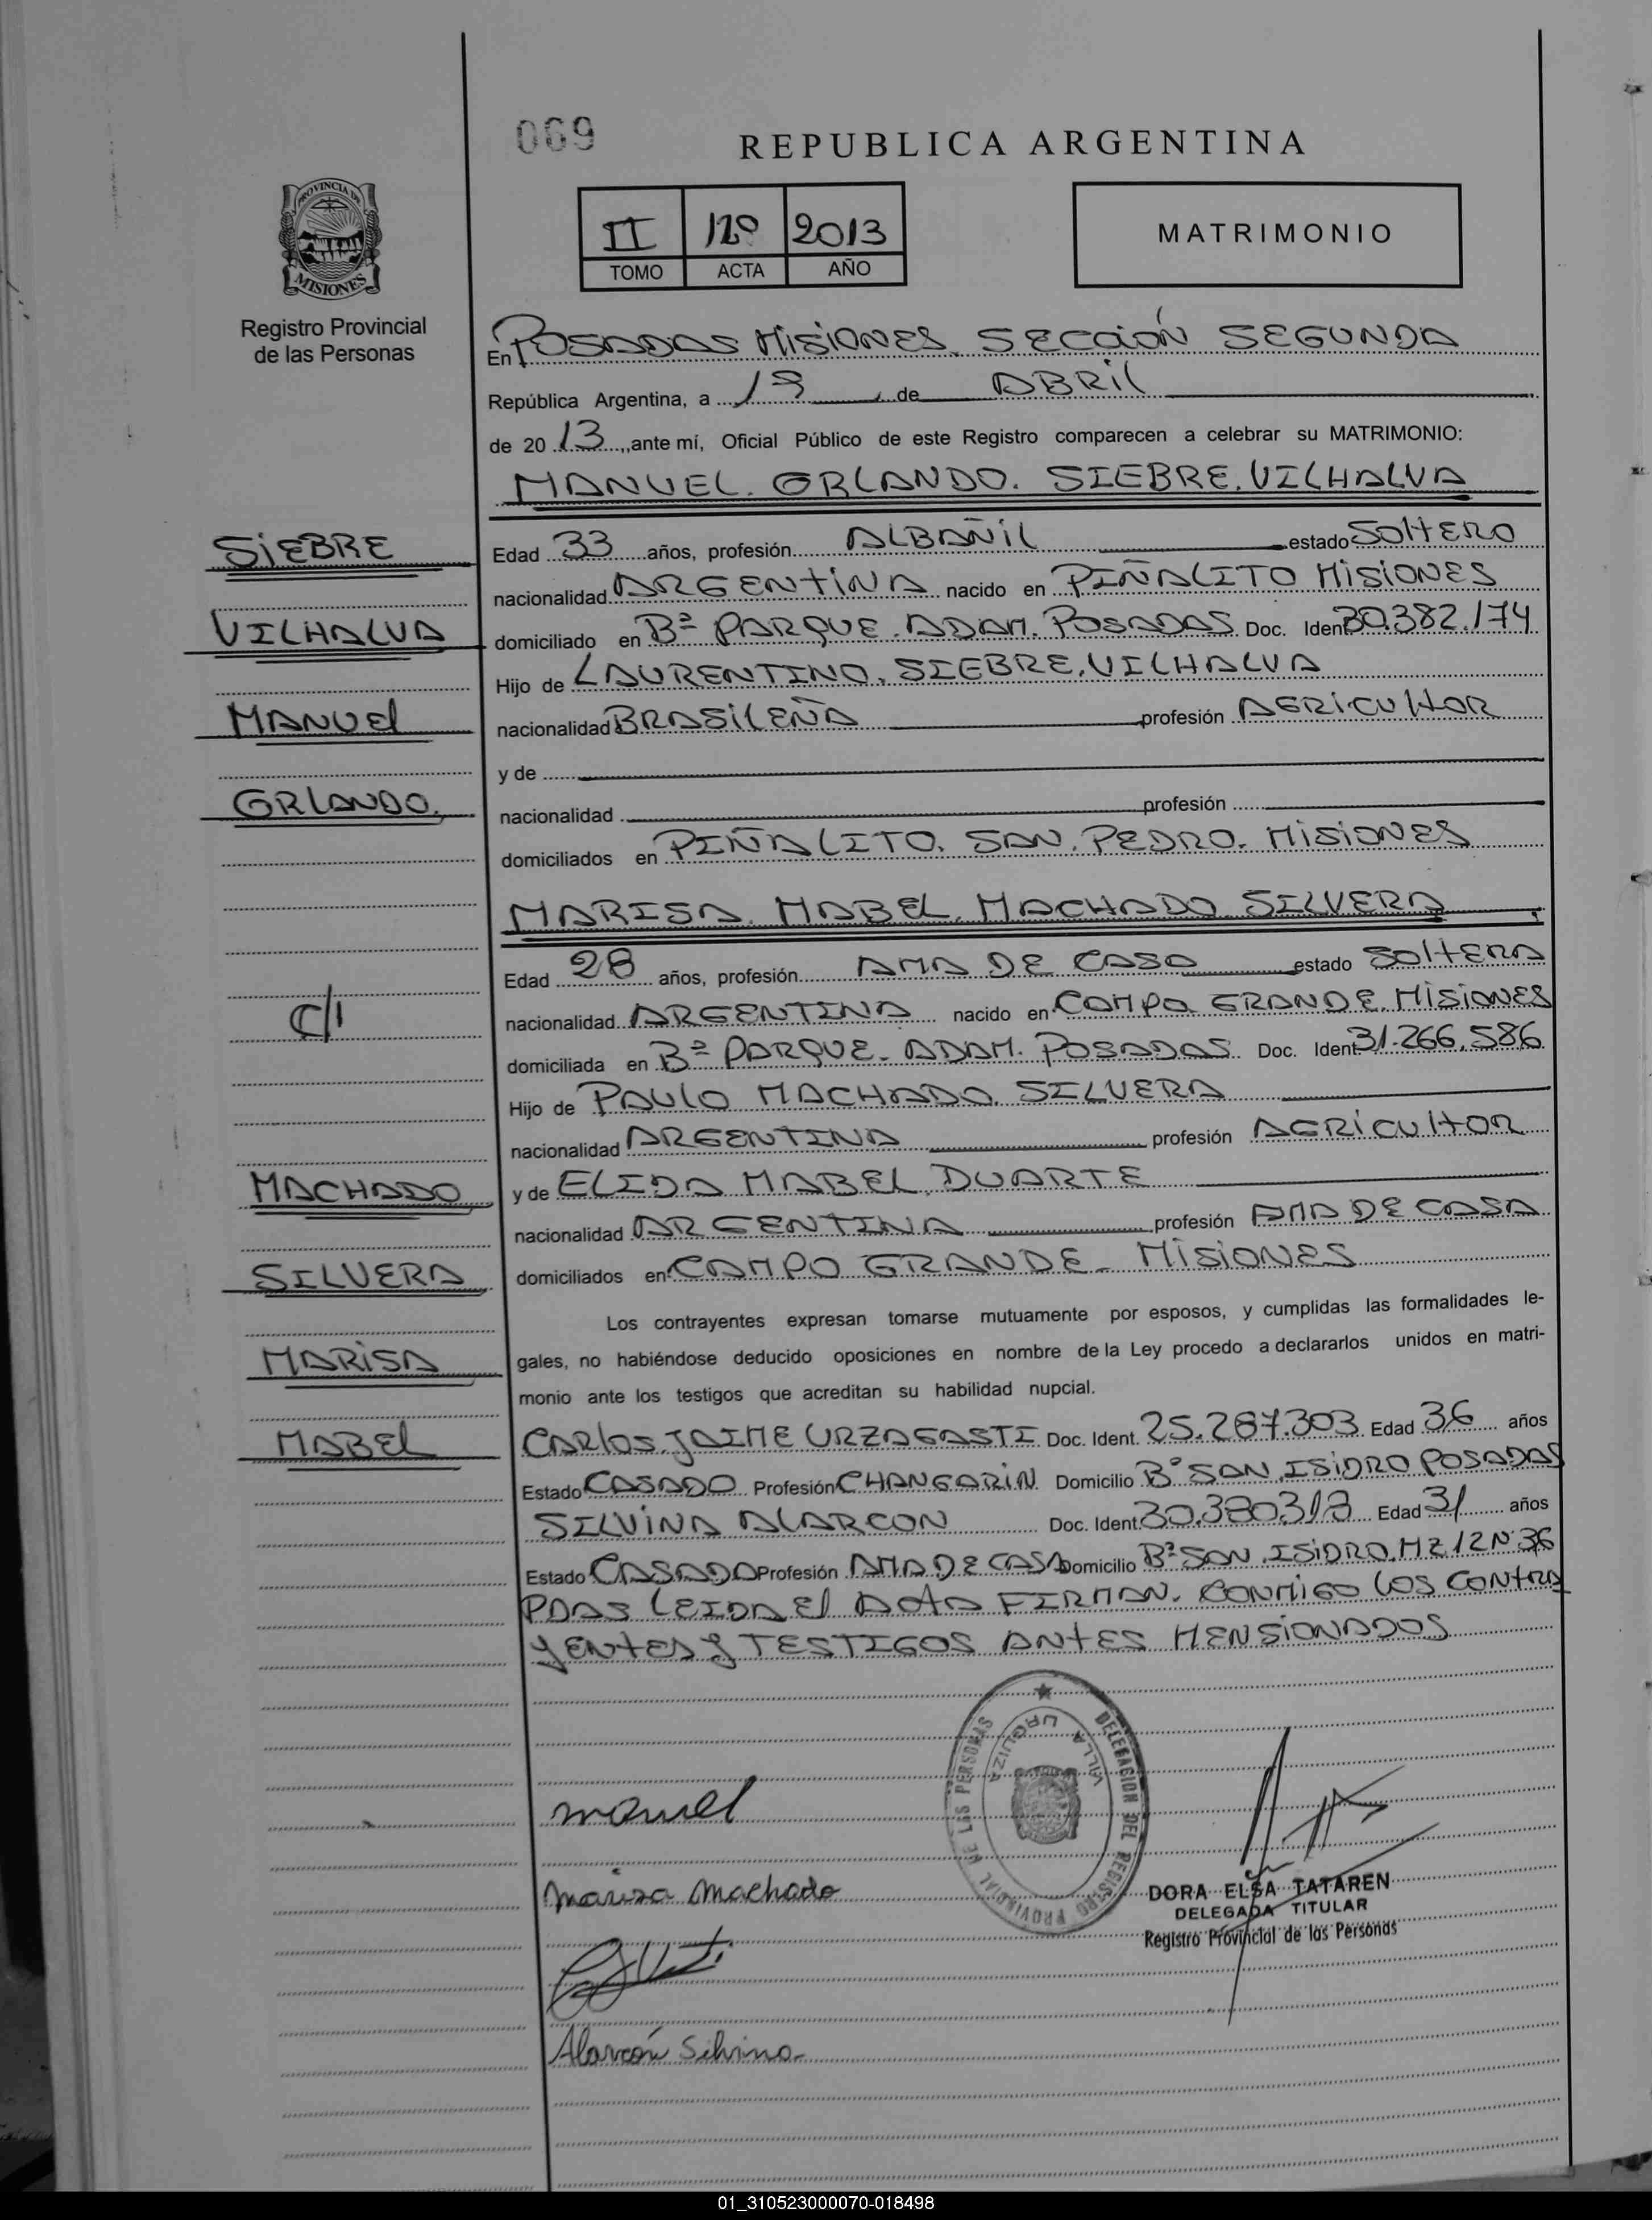 069
REPUBLICA ARGENTINA
PROVINCIA DE
MISIONES
Registro Provincial
de las Personas
II 120 2013
TOMO ACTA AÑO
MATRIMONIO
En POSADAS MISIONES. SECCIÓN SEGUNDA
República Argentina, a 19 de ABRIL
de 20 13, ante mí, Oficial Público de este Registro comparecen a celebrar su MATRIMONIO:
MANUEL. ORLANDO. SIEBRE. VILHALVA
Edad 33 años, profesión ALBAÑIL estado SOLTERO
nacionalidad ARGENTINA nacido en PIÑALITO MISIONES
domiciliado en Bº PARQUE. ADAM. POSADAS. Doc. Ident 30.382.174
Hijo de LAURENTINO. SIEBRE. VILHALVA
nacionalidad BRASILEÑA profesión AGRICULTOR
y de
nacionalidad profesión
domiciliados en PIÑALITO. SAN. PEDRO. MISIONES
MARISA. MABEL. MACHADO SILVERA
Edad 28 años, profesión AMA DE CASA estado SOLTERA
nacionalidad ARGENTINA nacido en CAMPO GRANDE. MISIONES
domiciliada en Bº PARQUE. ADAM. POSADAS Doc. Ident 31.266.586
Hijo de PAULO MACHADO. SILVERA
nacionalidad ARGENTINA profesión AGRICULTOR
y de ELIDA MABEL. DUARTE
nacionalidad ARGENTINA profesión AMA DE CASA
domiciliados en CAMPO GRANDE - MISIONES
Los contrayentes expresan tomarse mutuamente por esposos, y cumplidas las formalidades le-
gales, no habiéndose deducido oposiciones en nombre de la Ley procedo a declararlos unidos en matri-
monio ante los testigos que acreditan su habilidad nupcial.
CARLOS. JAIME URZAGASTI Doc. Ident. 25.287.303 Edad 36 años
Estado CASADO Profesión CHANGARIN Domicilio Bº SAN. ISIDRO POSADAS
SILVINA ALARCON Doc. Ident. Edad 31 años
Estado CASADA Profesión AMA DE CASA Domicilio Bº SAN. ISIDRO. MZ 12 Nº 36
PDAS LEIDA El ACTA FIRMAN. CONMIGO LOS CONTRA
YENTES Y TESTIGOS ANTES MENSIONADOS
SIEBRE
VILHALVA
MANUEL
ORLANDO.
C/I
MACHADO
SILVERA
MARISA
MABEL
manuel
marisa machado
Alarcón Silvina
DELEGACION DEL REGISTRO PROVINCIAL DE LAS PERSONAS
VILLA URQUIZA
DORA ELSA TATAREN
DELEGADA TITULAR
Registro Provincial de las Personas
01_310523000070-018498